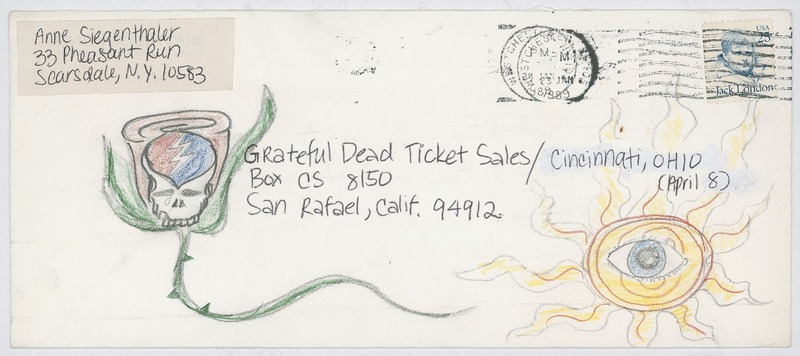 Anne Siegenthaler
33 Pheasant Run
Scarsdale, N.Y. 10583
PM
23 JAN
1989
USA
25
Jack London
Grateful Dead Ticket Sales/ Cincinnati, OHIO
(April 8)
Box CS 8150
San Rafael, Calif. 94912